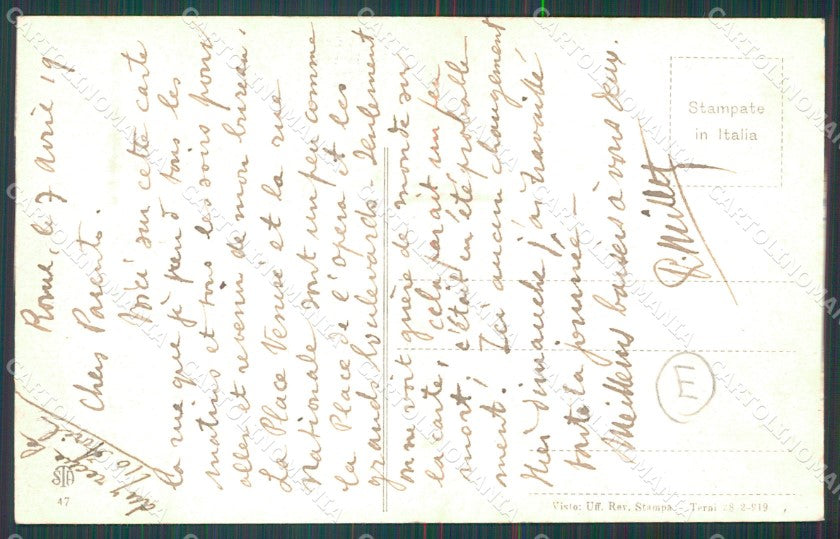 Rome, le 7 avril 19
Chers Parents.
Voici sur cette carte
la rue que je prend tous les
matins et tous les soirs pour
aller et revenir de mon bureau.
La Place Venise et la rue
Nationale sont un peu comme
la Place de l'opéra et les
grands boulevards. Seulement
on ne voit guère de monde sur
la carte, cela parait un peu
mort; c'était en été probable
ment. Ici aucun changement
Hier dimanche j'ai travaillé
toute la journée —
Meilleurs baisers à vous deux.
P. Millot
16 avril
Stampate
in Italia
E
STA
47
Visto: Uff. Rev. Stampa. Terni 28-2-919
CARTOLINOMANIA